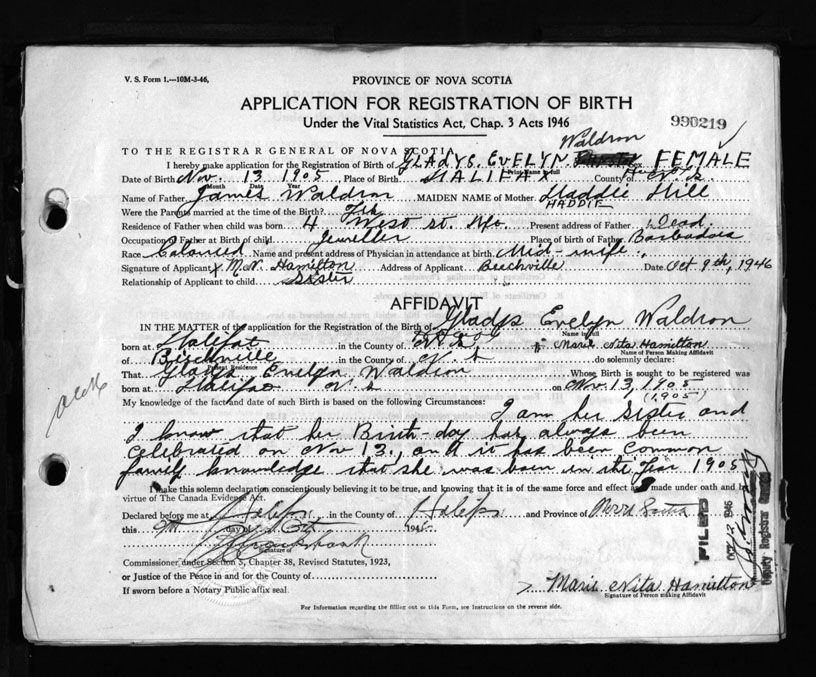 V. S. Form 1.—10M-3-46.
PROVINCE OF NOVA SCOTIA
APPLICATION FOR REGISTRATION OF BIRTH
Under the Vital Statistics Act, Chap. 3 Acts 1946
990219
Waldron
TO THE REGISTRAR GENERAL OF NOVA SCOTIA
I hereby make application for the Registration of Birth of GLADYS EVELYN Sex FEMALE
Print Name in full
Date of Birth Nov. 13 1905 Place of Birth HALIFAX County of N.S.
Month Date Year
Name of Father James Waldron MAIDEN NAME of Mother Haddie Hill
HADDIE
Were the Parents married at the time of Birth? Yes
Residence of Father when child was born 4 West St. Hfx. Present address of Father Dead
Occupation of Father at Birth of child Jeweller Place of birth of Father Barbadoes
Race Coloured Name and present address of Physician in attendance at birth Mid-wife
Signature of Applicant M. N. Hamilton Address of Applicant Beechville Date Oct 9th, 1946
Relationship of Applicant to child Sister
AFFIDAVIT
IN THE MATTER of the application for the Registration of the Birth of Gladys Evelyn Waldron
Name in full
born at Halifax in the County of Marie Nita Hamilton
Name of Person Making Affidavit
of Beechville in the County of N. S do solemnly declare:
Present Residence
That Gladys Evelyn Waldron Whose Birth is sought to be registered was
born at Halifax N. S on Nov. 13, 1905
(1905)
My knowledge of the fact and date of such Birth is based on the following Circumstances: I am her Sister and
I know that her Birth-day has always been
celebrated on Nov 13, and it has been common
family knowledge that she was born in the Year 1905
I make this solemn declaration conscientiously believing it to be true, and knowing that it is of the same force and effect as made under oath and by
virtue of The Canada Evidence Act.
Declared before me at Halifax, in the County of Halifax and Province of Nova Scotia
this 9th day of Oct 1946
Signature of
Commissioner under Section 5, Chapter 38, Revised Statutes, 1923,
or Justice of the Peace in and for the County of
If sworn before a Notary Public affix seal.
Marie Nita Hamilton
Signature of Person making Affidavit
For Information regarding the filling out of this Form, see Instructions on the reverse side.
FILED
OCT 12 1946
Deputy Registrar General